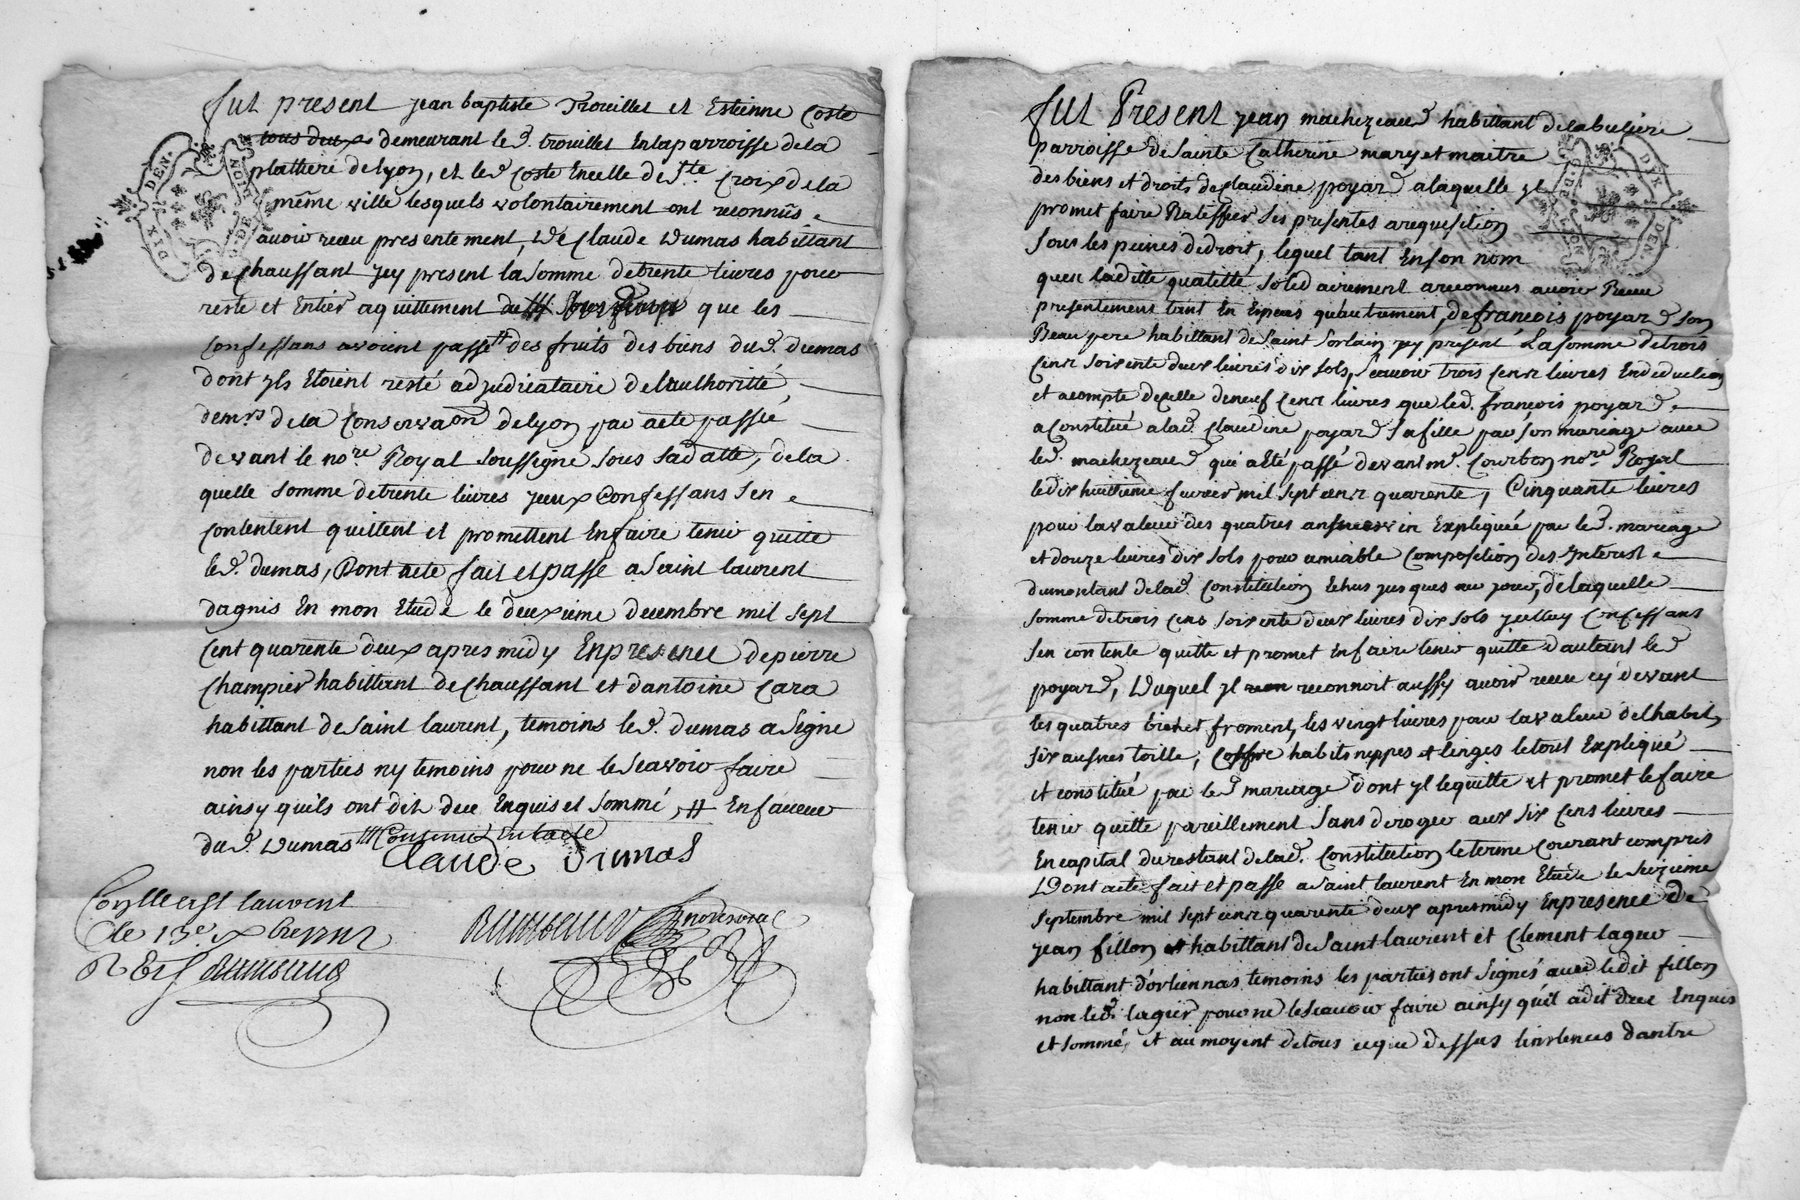 fut present jean baptiste Trouillet et Estienne Coste
tous deux demeurant le d. trouillet En la parroisse de la
plattiere de lyon, et le d. Coste En celle de Ste Croix de la
même ville lesquels volontairement ont reconnûs
avoir receu presentement, De Claude Dumas habittant
de Chaussant Jcy present la somme de trente livres pour
reste et Entier aquittement de que les
Confessans avoient passé des fruits des biens du d. dumas
dont yls Etoient resté adjudicataire de lauthoritté
de mrs de la Conservaon de lyon par acte passé
devant le nore Royal soussigné sous sa datte, de la
quelle somme de trente livres yceux Confessans sen
contentent quittent et promettent En faire tenir quitte
le d. dumas, Dont acte fait et passé a Saint laurent
dagnis En mon Etude le deuxieme decembre mil sept
Cent quarente deux apres midy En presence de pierre
Champier habittant de Chaussant et dantoine Cara
habittant de Saint laurent, temoins le d. dumas a signé
non les parties ny temoins pour ne le scavoir faire
ainsy quils ont dit de ce Enquis et sommé, # En faveur
du d. Dumas Contenu En lacte
Claude Dumas
st laurent
le 13e xbre 1742
nore royal
DIX DEN.
DE LION
G. DE
fut Present jean machezeaud habittant de la buliere
parroisse de Sainte Catherine mary et maitre
des biens et droits de Claudine poyard a laquelle yl
promet faire Ratiffier ses presentes a requesition
sous les peines de droit, lequel tant En son nom
quen laditte qualitté solidairement a reconnus avoir Receu
presentement tant En Especes quautrement, de francois poyard son
Beau pere habittant de Saint Sorlain jcy present La somme de trois
Cent soixente deux livres dix sols, scavoir trois Cent livres En deduction
et acompte de Celle de neuf Cent livres que le d. francois poyard
a Constitué a la d. Claudine poyard sa fille par son mariage avec
le d. machezeaud qui a Eté passé devant mr. Courbon nore Royal
le dix huittieme fevrier mil sept cent quarente, Cinquante livres
pour la valeur des quatres de vin Expliquée par le d. mariage
et douze livres dix sols pour amiable Composition des Interest
du montant de la d. Constitution Echus jusques au jour, de laquelle
somme de trois Cens soixente deux livres dix sols jcelluy Confessans
sen contente quitte et promet En faire tenir quitte dautant le d.
poyard, Duquel yl reconnoit aussy avoir receu cy devant
les quatres bichet froment, les vingt livres pour la valeur de lhabit,
six ausnes toille, Coffre habits nippes et linges le tout Expliqué
et constitué par le d. mariage dont yl le quitte et promet le faire
tenir quitte pareillement sans deroger aux six Cens livres
En capital du restant de la d. Constitution le terme Courant compris
Dont acte fait et passé a Saint laurent En mon Etude le seizieme
septembre mil sept cent quarente deux apres midy En presence de
jean fillon habittant de Saint laurent et Clement lagier
habittant dorliennas temoins les parties ont signés avec ledit fillon
non le d. lagier pour ne le scavoir faire ainsy quil a dit de ce Enquis
et sommé, et au moyent de tous ce que dessus dantre
DIX DEN.
G. DE LION